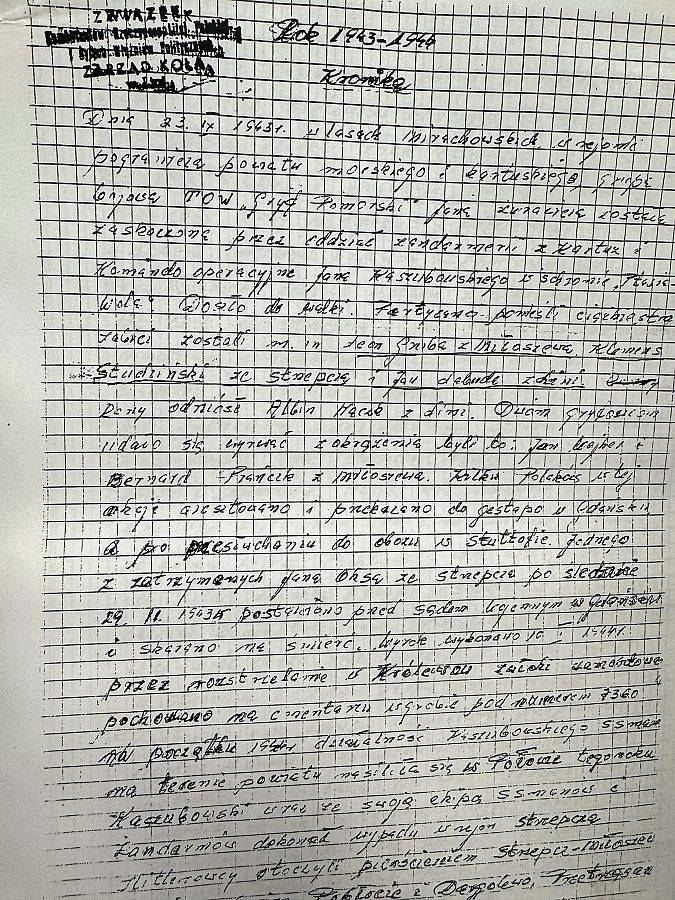 ZWIĄZEK
Kombatantów Rzeczypospolitej Polskiej
i Byłych Więźniów Politycznych
ZARZĄD KOŁA
Rok 1943-1944
Kronika
Dnia 23. IX 1943r. w lasach Mirachowskich w rejonie
pogranicza powiatu morskiego i kartuskiego, grupa
bojowa TOW „Gryf Pomorski" Jana została
zaskoczona przez oddział żandarmerii z Kartuz i
Komando operacyjne Jana Kaszubowskiego w schronie „Ptasia-
Wola" Doszło do walki. Partyzanci ponieśli ciężkie stra
zabici zostali m. in Leon Gniba z Miłoszewa, Klemens
Studziński ze Strepcza i Jan debuda z Lini.
Rany odniósł Albin Hacuk z Lini. Dwóm Gryfowcom
udało się wyrwać z okrążenia byli to: Jan Wajher i
Bernard Prańcik z Miłoszewa. Kilku Polaków w tej
akcji aresztowano i przekazano do gestapo w Gdańsku,
a po przesłuchaniu do obozu w Stutthofie. Jednego
z zatrzymanych Jana Oksa ze Strepcza po śledztwie
29. 11. 1943 postawiono przed sądem wojennym w Gdańsku
i skazano na śmierć. Wyrok wykonano 1944r.
przez rozstrzelanie w Królewcu zwłoki zamordowa
pochowano na cmentarzu w grobie pod numerem 7360
na początku 1944r. działalność Kaszubowskiego SS mana
na terenie powiatu nasiliła się w Połowie tego roku
Kaszubowski wraz ze swoją ekipą SSmanów i
żandarmów dokonał wypadu w rejon Strepcza
Hitlerowcy otoczyli pierścieniem Strepcz-Miłoszew
Potłocie i Dargolewo,